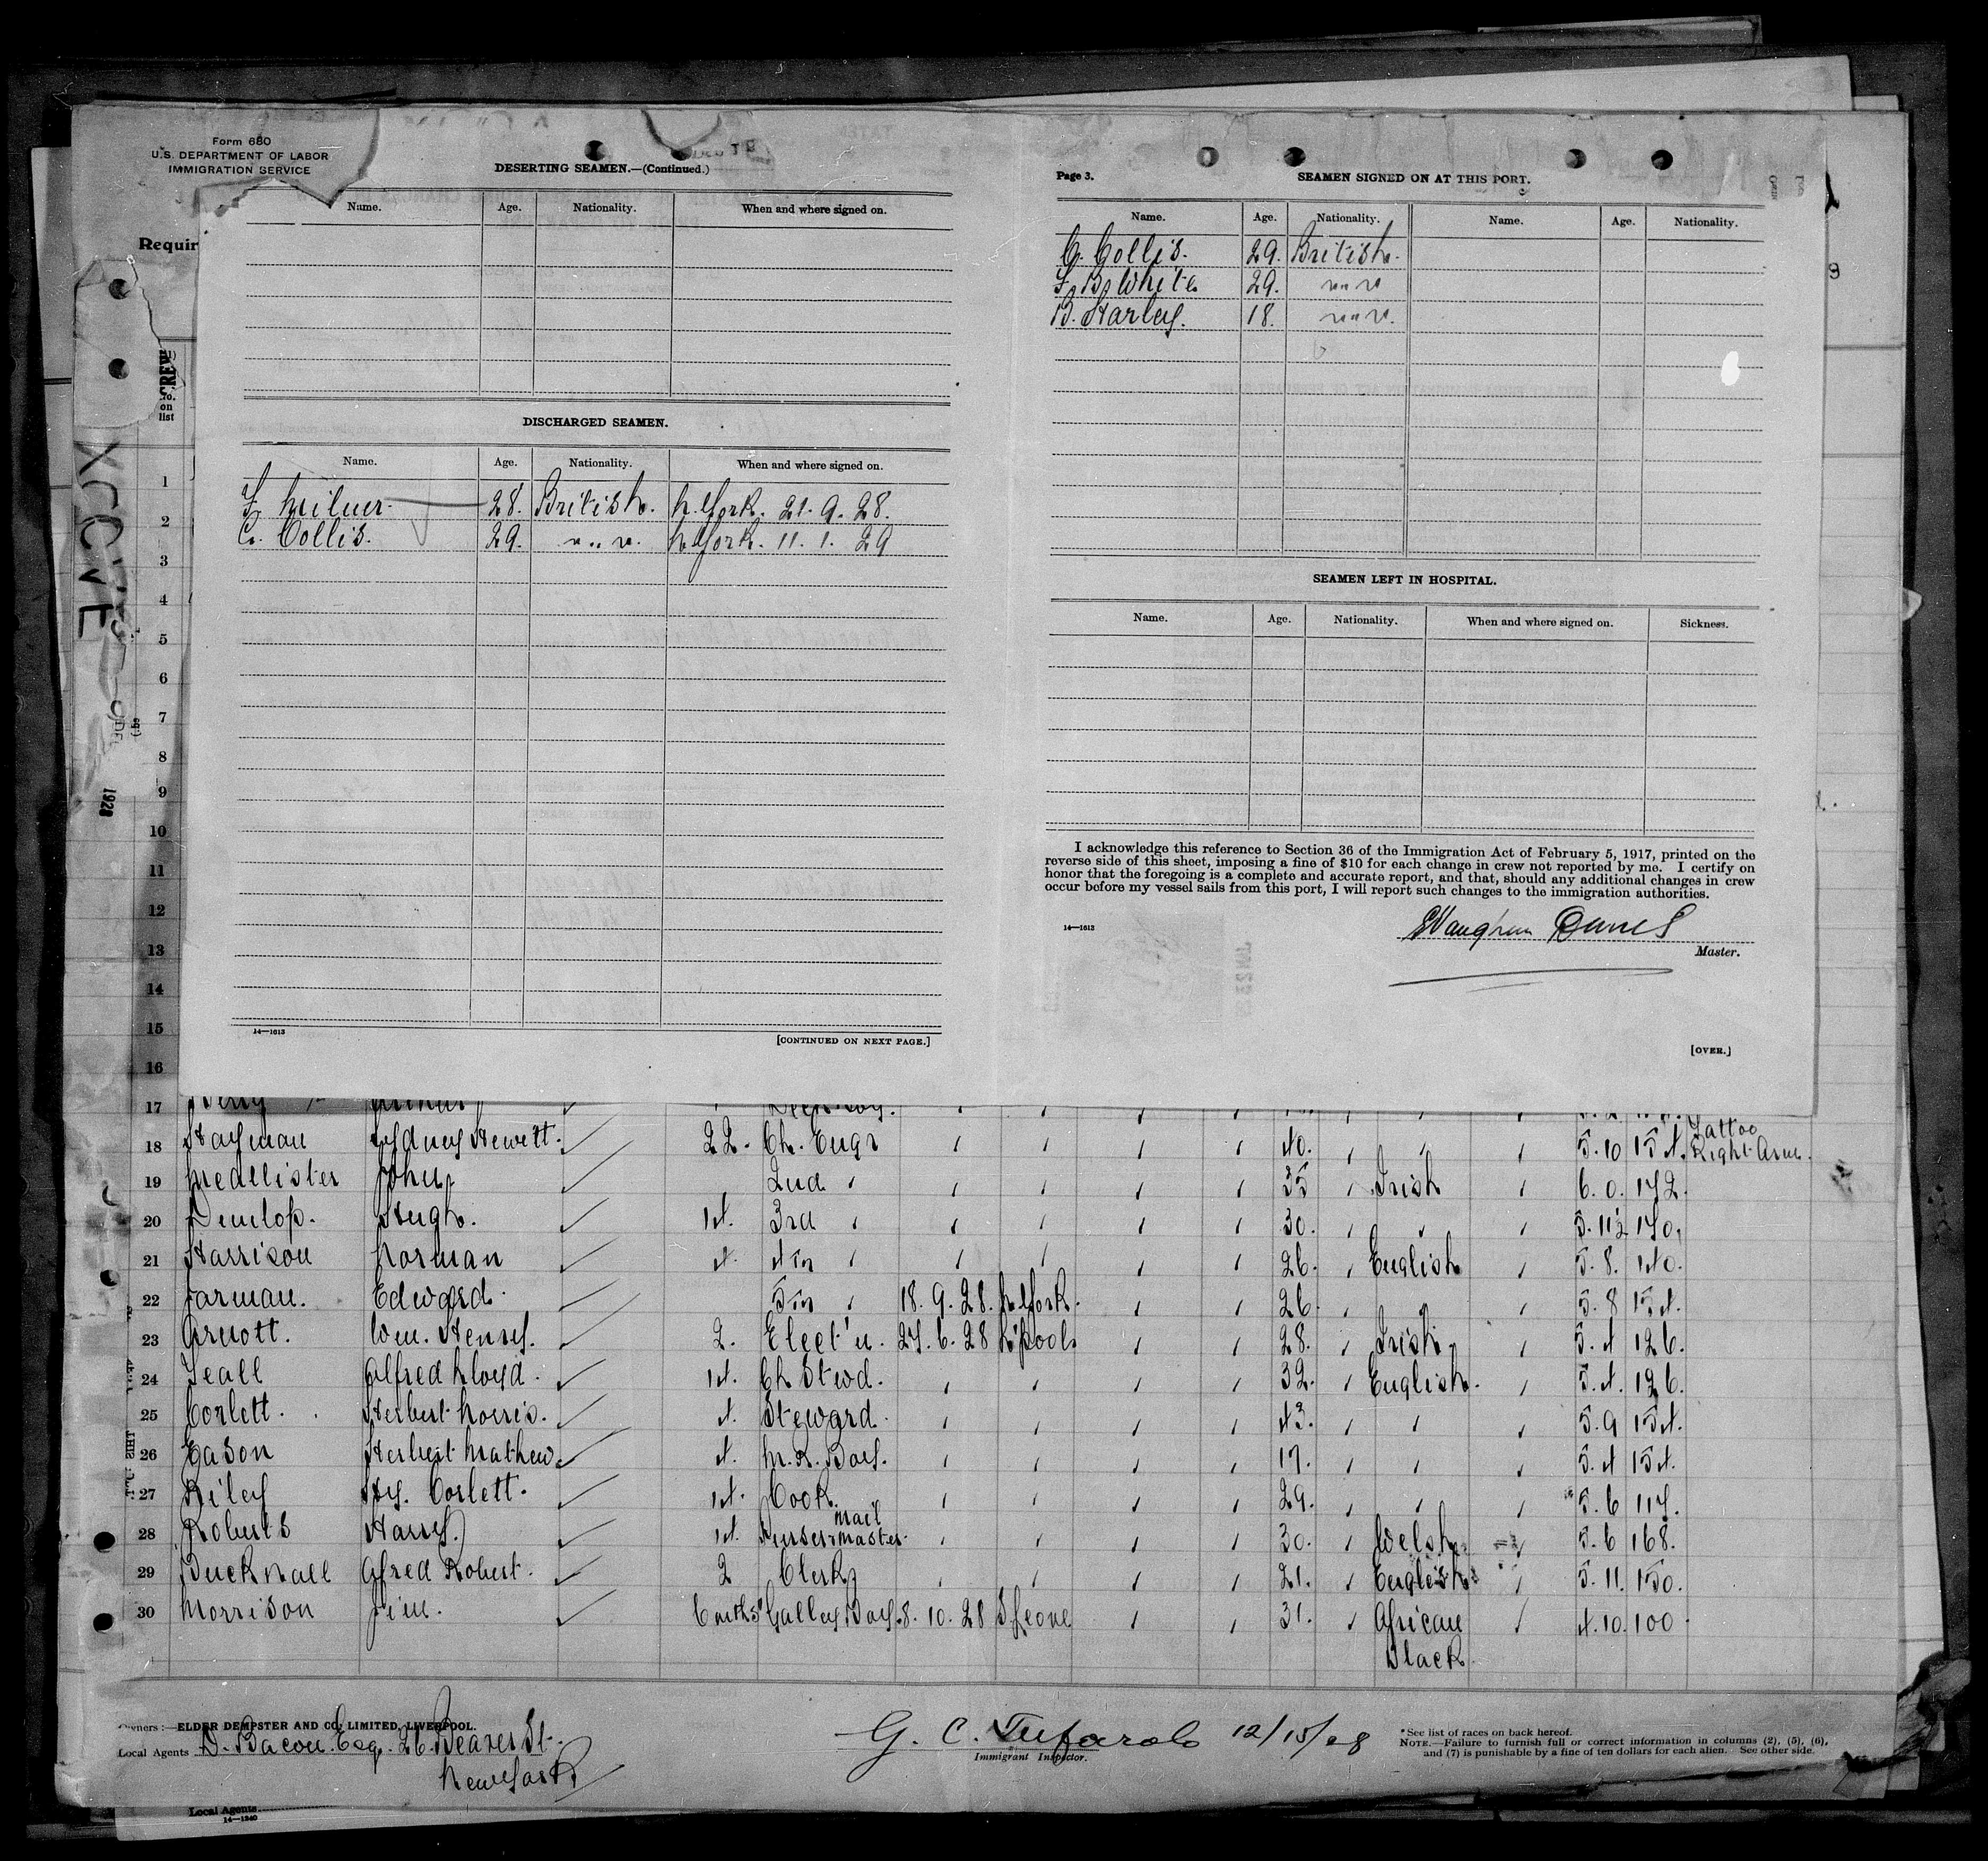 Form 680
U.S. DEPARTMENT OF LABOR
IMMIGRATION SERVICE
Requir
DESERTING SEAMEN.—(Continued.)
Name. Age. Nationality. When and where signed on.
DISCHARGED SEAMEN.
Name. Age. Nationality. When and where signed on.
F. Milner. 28. British. N. York. 21. 9. 28.
C. Collis. 29. " " " N York. 11. 1. 29
14—1613
[CONTINUED ON NEXT PAGE.]
Page 3.
SEAMEN SIGNED ON AT THIS PORT.
Name. Age. Nationality. Name. Age. Nationality.
C. Collis. 29. British.
F. B. White 29. " " "
B. Harley. 18. " " "
SEAMEN LEFT IN HOSPITAL.
Name. Age. Nationality. When and where signed on. Sickness.
I acknowledge this reference to Section 36 of the Immigration Act of February 5, 1917, printed on the
reverse side of this sheet, imposing a fine of $10 for each change in crew not reported by me. I certify on
honor that the foregoing is a complete and accurate report, and that, should any additional changes in crew
occur before my vessel sails from this port, I will report such changes to the immigration authorities.
14—1613
Master.
[OVER.]
CREW
No.
on
list
1
2
3
4
5
6
7
8
9
10
11
12
13
14
15
16
1928
17
18 Hayman Sydney Hewitt. 22. Ch. Engr 40. 5.10 154. Tattoo Right Arm.
19 McAllister John 2nd 35 Irish 6.0. 172.
20 Dunlop. Hugh. 14. 3rd 30. 5.11½ 170.
21 Harrison Norman 4. 4th 26. English 5.8. 140.
22 Jarman. Edward. 5th 18.9.28. N. York. 26. 5.8 154.
23 Arnott. Wm. Henry. 2. Elect'n. 27.6.28 L'pool. 28. Irish. 5.4 126.
24 Teall Alfred Lloyd. 14. Ch Stwd. 32. English. 5.4. 126.
25 Corlett. Herbert Norris. 4. Steward. 43. 5.9 154.
26 Eason Herbert Mathew. 4. M. R. Boy. 17. 5.4 154.
27 Riley Hy. Corlett. 14. Cook. 29. 5.6 117.
28 Roberts Harry. 14. Purser & Mail master. 30. Welsh 5.6 168.
29 Bucknall Alfred Robert. 2 Clerk 21. English 5.11. 150.
30 Morrison Jim. 6 mths Galley Boy. 8.10.28 S Leone 31. African Black 4.10. 100
Owners:—ELDER DEMPSTER AND CO. LIMITED, LIVERPOOL.
Local Agents D. Bacon Esq. 26. Beaver St.
New York
G. C. Tufarolo 12/15/28
Immigrant Inspector.
*See list of races on back hereof.
NOTE.—Failure to furnish full or correct information in columns (2), (5), (6),
and (7) is punishable by a fine of ten dollars for each alien. See other side.
Local Agents
14—1240